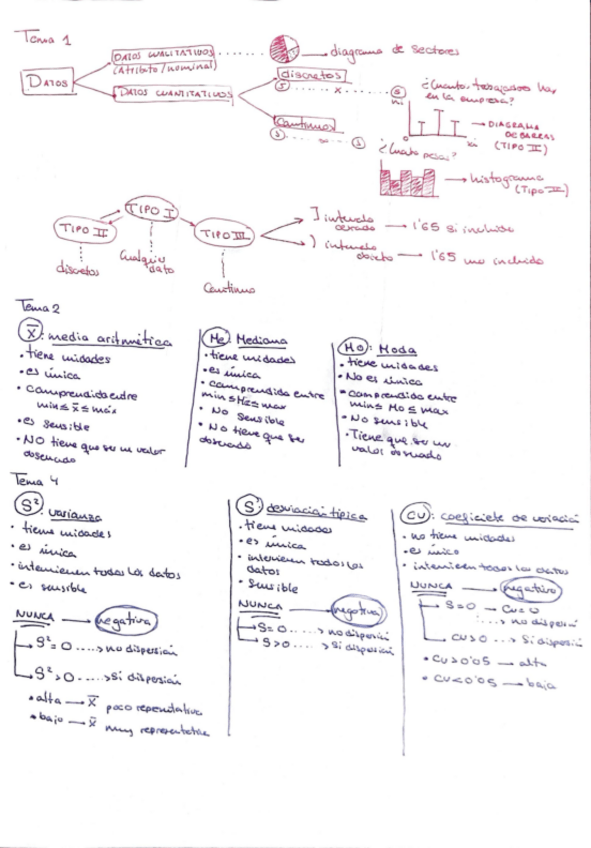 Tema 1
DATOS
DATOS CUALITATIVOS
(Atributo/nominal)
diagrama de sectores
DATOS CUANTITATIVOS
discretos
x
Continuos
∞
¿Cuantos trabajadores hay
en la empresa?
ni
xi
DIAGRAMA
DE BARRAS
(TIPO II)
¿Cuanto pesas?
histograma
(TIPO III)
TIPO I
TIPO II
TIPO III
discretos
Cualquier
dato
Continuo
] intervalo
cerrado → 1'65 si incluido
) intervalo
abierto → 1'65 no incluido
Tema 2
X̄: media aritmética
• tiene unidades
• es única
• comprendida entre
min ≤ x̄ ≤ max
• es sensible
• NO tiene que ser un valor
observado
Me: Mediana
• tiene unidades
• es única
• comprendida entre
min ≤ Me ≤ max
• No sensible
• NO tiene que ser
observado
Mo: Moda
• tiene unidades
• No es única
• comprendida entre
min ≤ Mo ≤ max
• No sensible
• Tiene que ser un
valor observado
Tema 4
S²: varianza
• tiene unidades
• es única
• intervienen todos los datos
• es sensible
NUNCA → negativa
S² = 0 ....> no dispersión
S² > 0 ....> Si dispersión
• alta → X̄ poco representativa
• bajo → x̄ muy representativa
S: desviación típica
• tiene unidades
• es única
• intervienen todos los
datos
• Sensible
NUNCA → negativa
S = 0 ....> no dispersión
S > 0 ....> Si dispersión
CV: coeficiente de variación
• no tiene unidades
• es único
• intervienen todos los datos
NUNCA → negativo
S = 0 → CV = 0
....> no dispersión
CV > 0 ...> Si dispersión
• CV > 0'05 → alta
• CV < 0'05 → baja